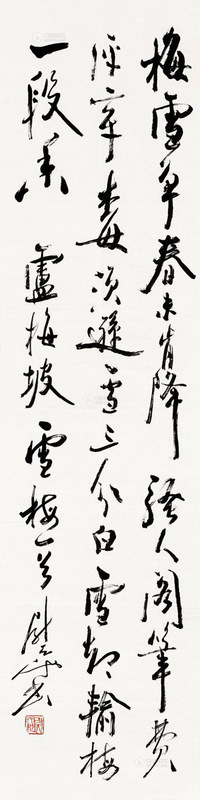 梅雪争春未肯降骚人阁笔费
评章梅须逊雪三分白雪却输梅
一段香 卢梅坡雪梅一首